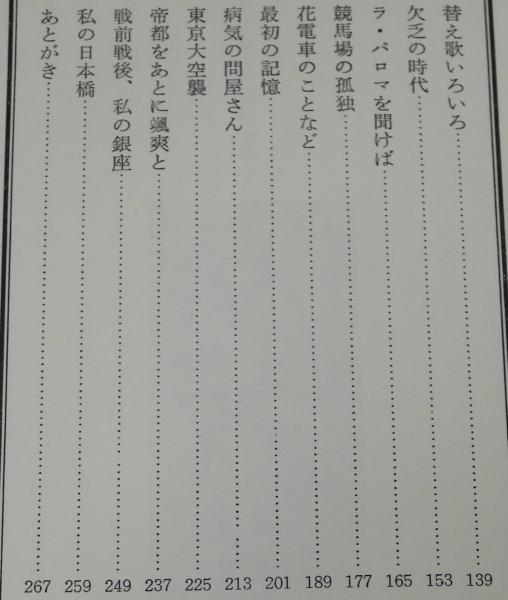 替え歌いろいろ……139
欠乏の時代……153
ラ・パロマを聞けば……165
競馬場の孤独……177
花電車のことなど……189
最初の記憶……201
病気の問屋さん……213
東京大空襲……225
帝都をあとに颯爽と……237
戦前戦後、私の銀座……249
私の日本橋……259
あとがき……267